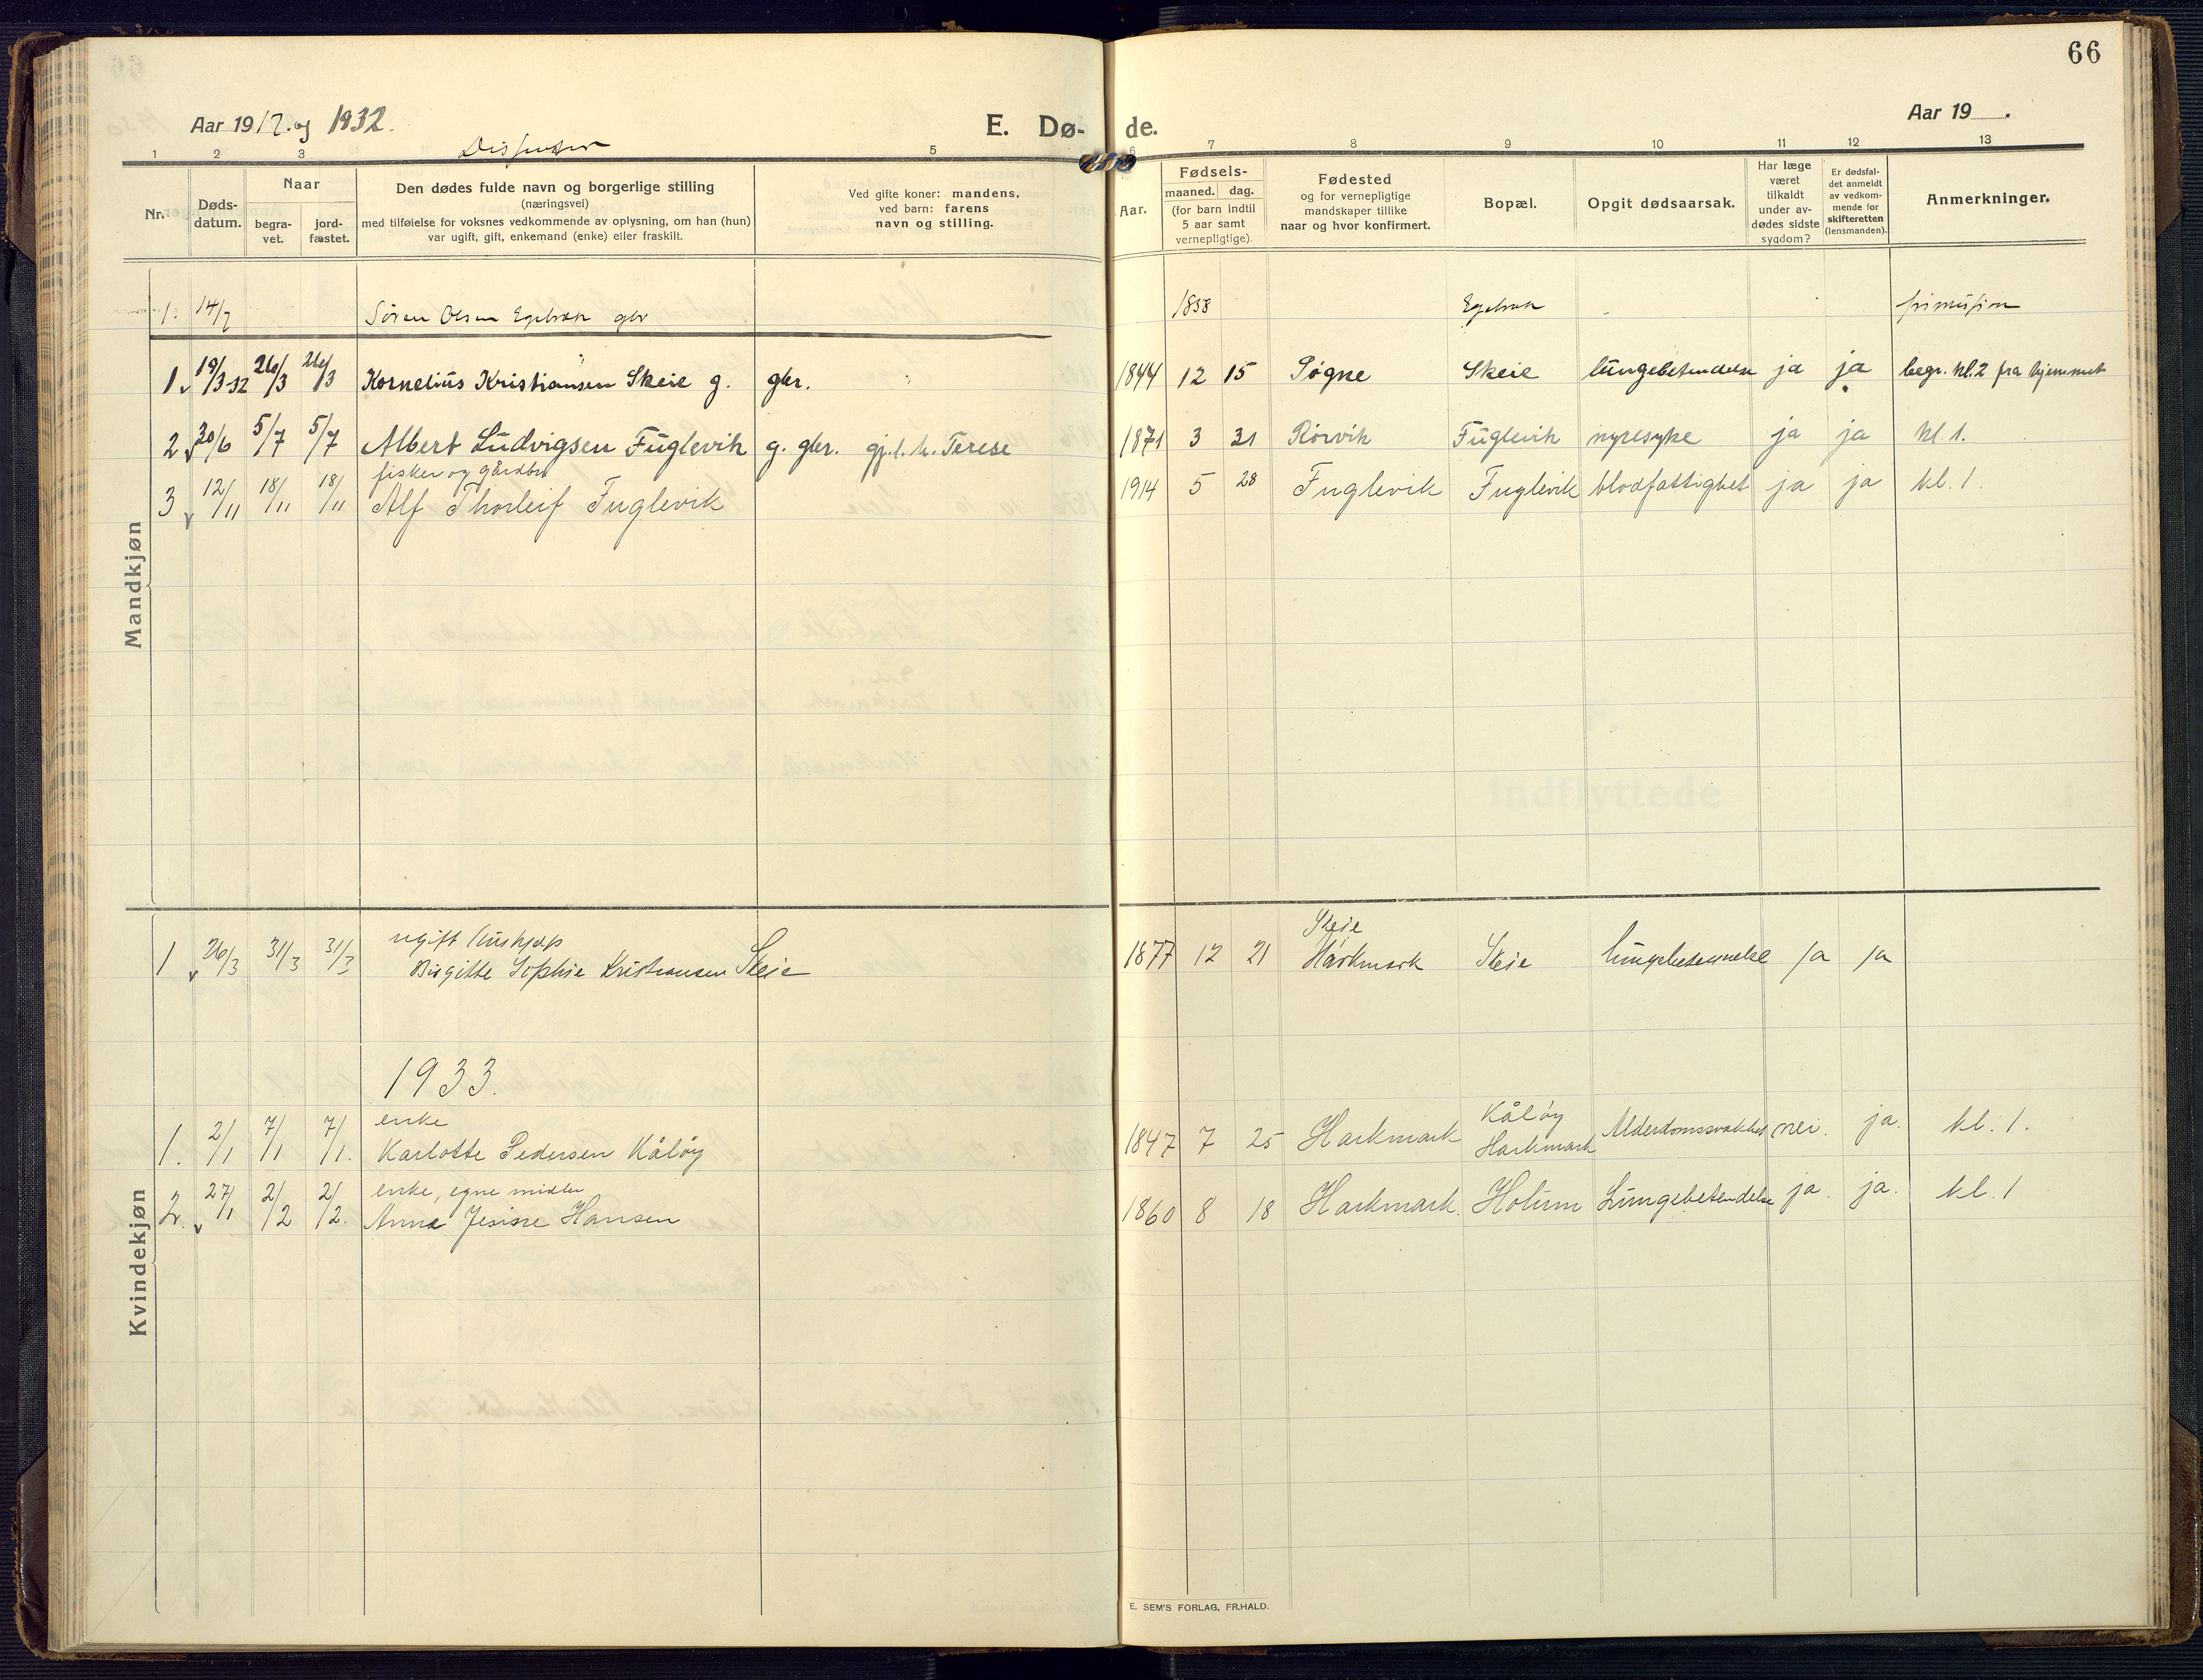 66
Aar 1917. og 1932.
E. Dø- de.
Aar 19 .
1 2 3 5 6 7 8 9 10 11 12 13
Nr.
Døds-
datum.
Naar
begra-
vet.
jord-
fæstet.
Den dødes fulde navn og borgerlige stilling
(næringsvei)
med tilføielse for voksnes vedkommende av oplysning, om han (hun)
var ugift, gift, enkemand (enke) eller fraskilt.
Ved gifte koner: mandens,
ved barn: farens
navn og stilling.
Aar.
Fødsels-
maaned. dag.
(for barn indtil
5 aar samt
vernepligtige).
Fødested
og for vernepligtige
mandskaper tillike
naar og hvor konfirmert.
Bopæl.
Opgit dødsaarsak.
Har læge
været
tilkaldt
under av-
dødes sidste
sygdom?
Er dødsfal-
det anmeldt
av vedkom-
mende for
skifteretten
(lensmanden).
Anmerkninger.
Mandkjøn
1. 14/7 Sören Olsen gbr 1838
1 19/3-32 26/3 26/3 Kornelius Kristiansen Skeie g. gbr. 1844 12 15 Søgne Skeie ja ja begr. kl. 2 fra hjemmet
2 30/6 5/7 5/7 Albert Ludvigsen Fuglevik g. gbr. gj. l. h. Terese 1871 3 31 Rörvik Fuglevik nyresyke ja ja kl. 1.
fisker og gårdbr
3 12/11 18/11 18/11 Alf Thorleif Fuglevik 1914 5 28 Fuglevik Fuglevik blodfattighet ja ja kl. 1.
Kvindekjøn
ugift hushjelp Skeie
1 26/3 31/3 31/3 Birgitte Sophie Kristiansen Skeie 1877 12 21 Harkmark Skeie lungebetennelse ja ja
1933.
enke Kålöy
1. 2/1 7/1 7/1. Karlotte Pedersen Kålöy 1847 7 25 Harkmark Harkmark Alderdomssvakhet nei. ja. kl. 1.
enke, egne midler
2. 27/1 2/2 2/2. Anna Jesine Hansen 1860 8 18 Harkmark. Holum Lungebetendelse ja. ja. kl. 1
E. SEM'S FORLAG, FR.HALD.